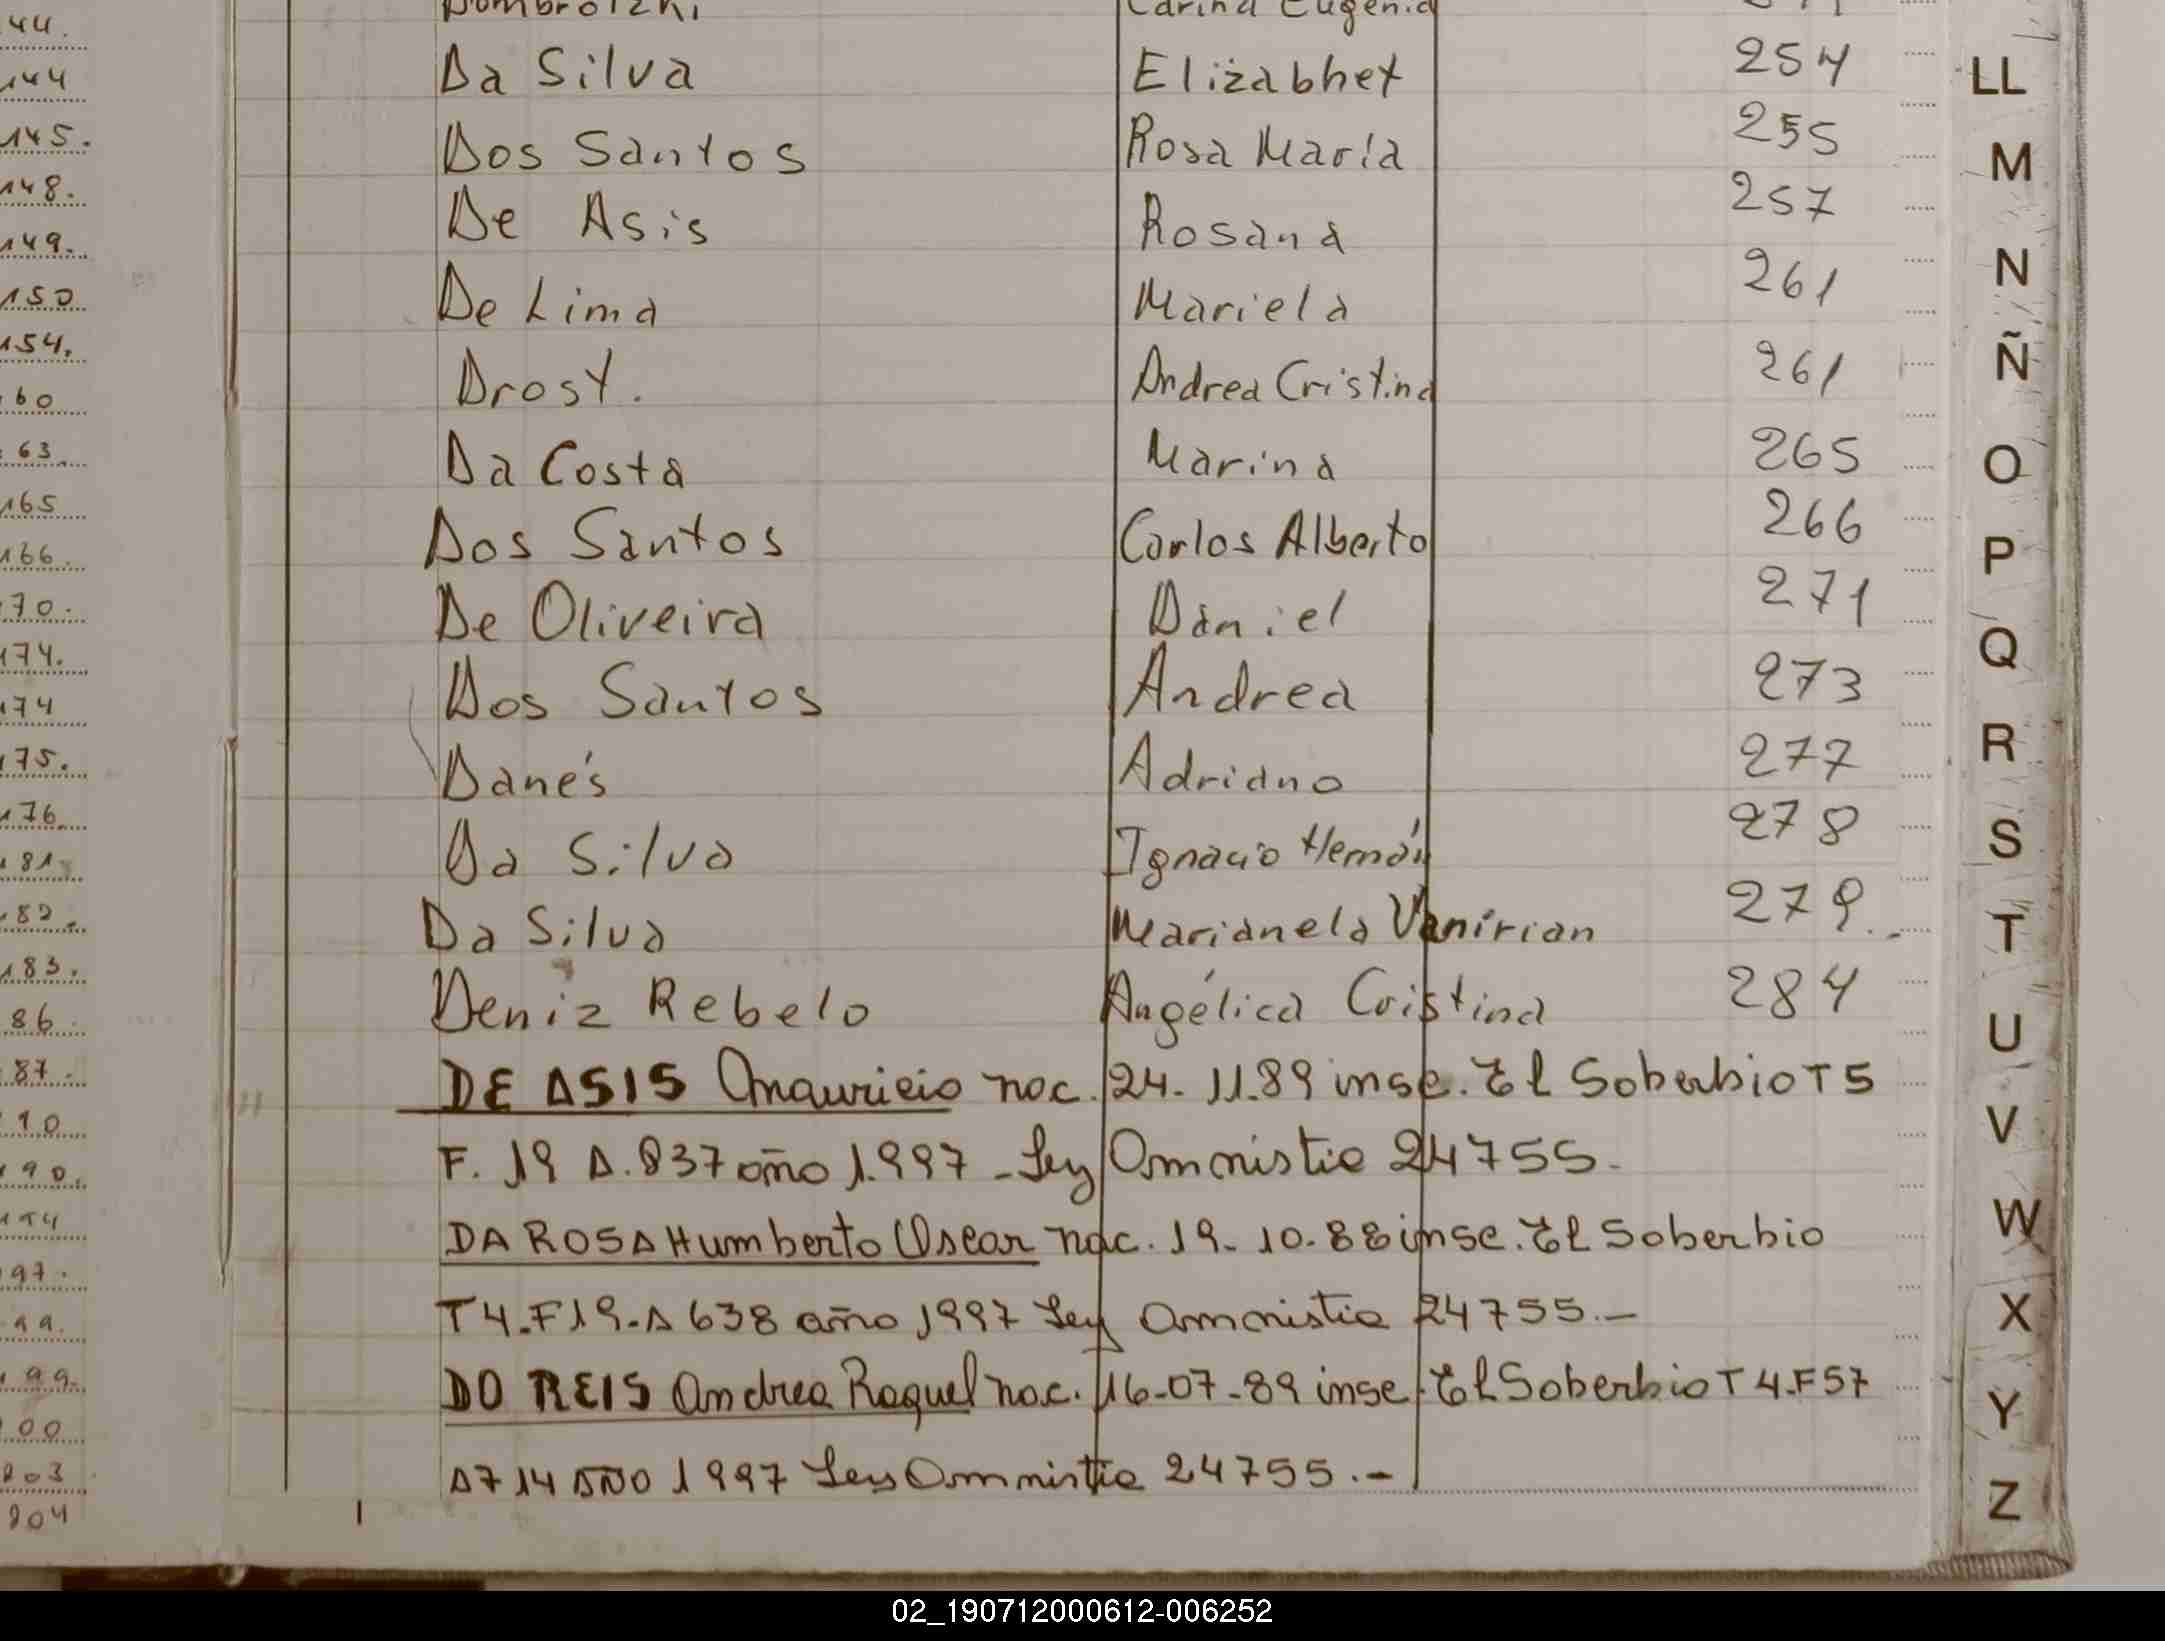 Da Silva Elizabhet 254
Dos Santos Rosa María 255
De Asis Rosana 257
De Lima Mariela 261
Drost. Andrea Cristina 261
Da Costa Marina 265
Dos Santos Carlos Alberto 266
De Oliveira Daniel 271
Dos Santos Andrea 273
Danés Adriano 277
Da Silva Ignacio Hernán 278
Da Silva Marianela 279.
Deniz Rebelo Angélica Cristina 284
DE ASIS Mauricio nac. 24. 11.89 insc. El Soberbio T5
F. 19 A. 837 año 1.997 - Ley Amnistia 24755.
DA ROSA Humberto Oscar nac. 19- 10-88 insc. El Soberbio
T4.F19.A 638 año 1997 Ley Amnistia 24755.-
DO REIS Andrea Raquel nac. 16-07-89 insc. El Soberbio T4.F57
A714 AÑO 1997 Ley Amnistia 24755.-
44.
144
145.
148.
149.
150
154.
60
63
165
166
70.
174.
174
175.
176
181
182
183.
86
87
10
190.
97.
99.
199.
00
203
204
LL
M
N
Ñ
O
P
Q
R
S
T
U
V
W
X
Y
Z
02_190712000612-006252